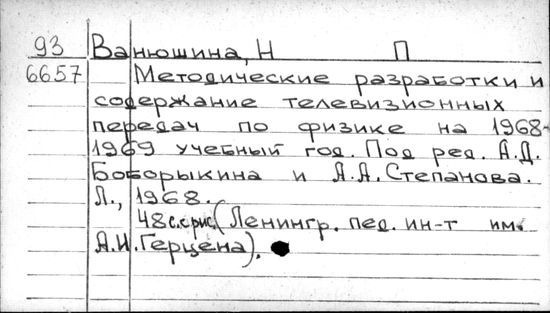 93 Ванюшина, Н П
6657 Методические разработки и
содержание телевизионных
передач по физике на 1968-
1969 учебный год. Под ред. А.Д.
Боборыкина и А.А.Степанова.
Л., 1968.
48с.с рис. (Ленингр. пед. ин-т им.
А.И.Герцена).